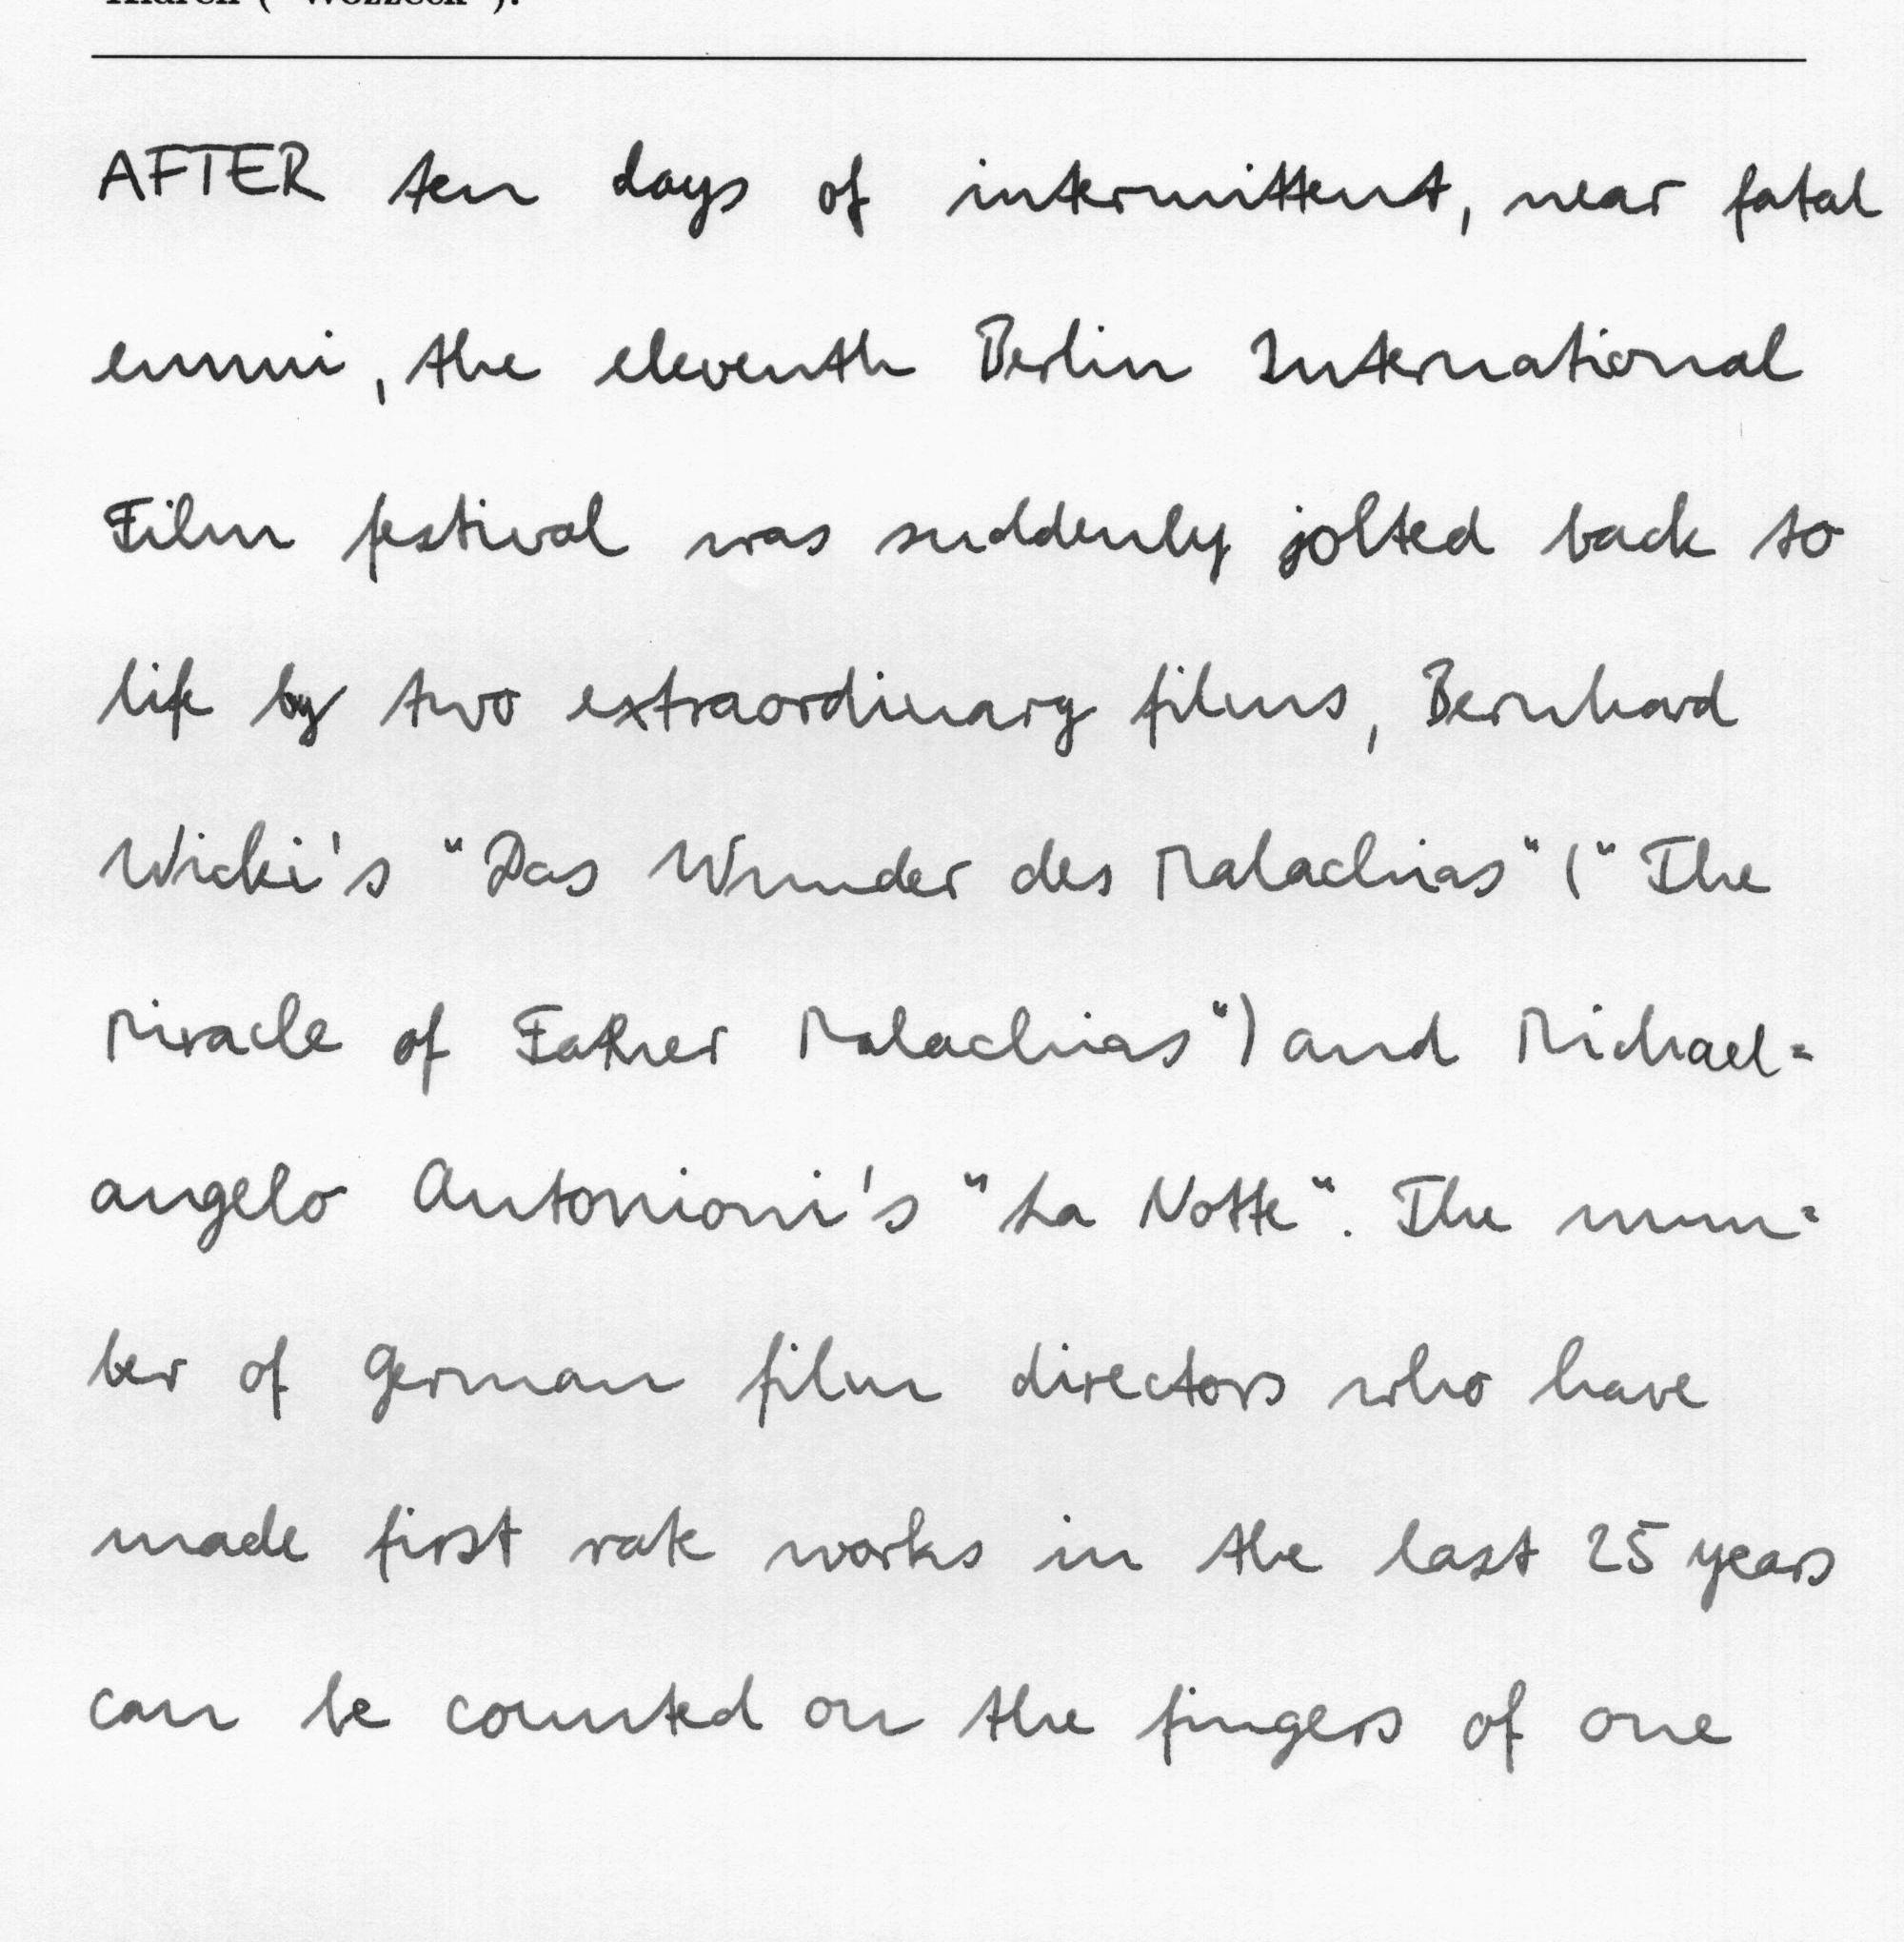 ("Wozzeck").
AFTER ten days of intermittent, near fatal
ennui, the eleventh Berlin International
Film festival was suddenly jolted back to
life by two extraordinary films, Bernhard
Wicki's "Das Wunder des Malachias" ("The
Miracle of Father Malachias") and Michael=
angelo Antonioni's "La Notte". The num=
ber of German film directors who have
made first rate works in the last 25 years
can be counted on the fingers of one